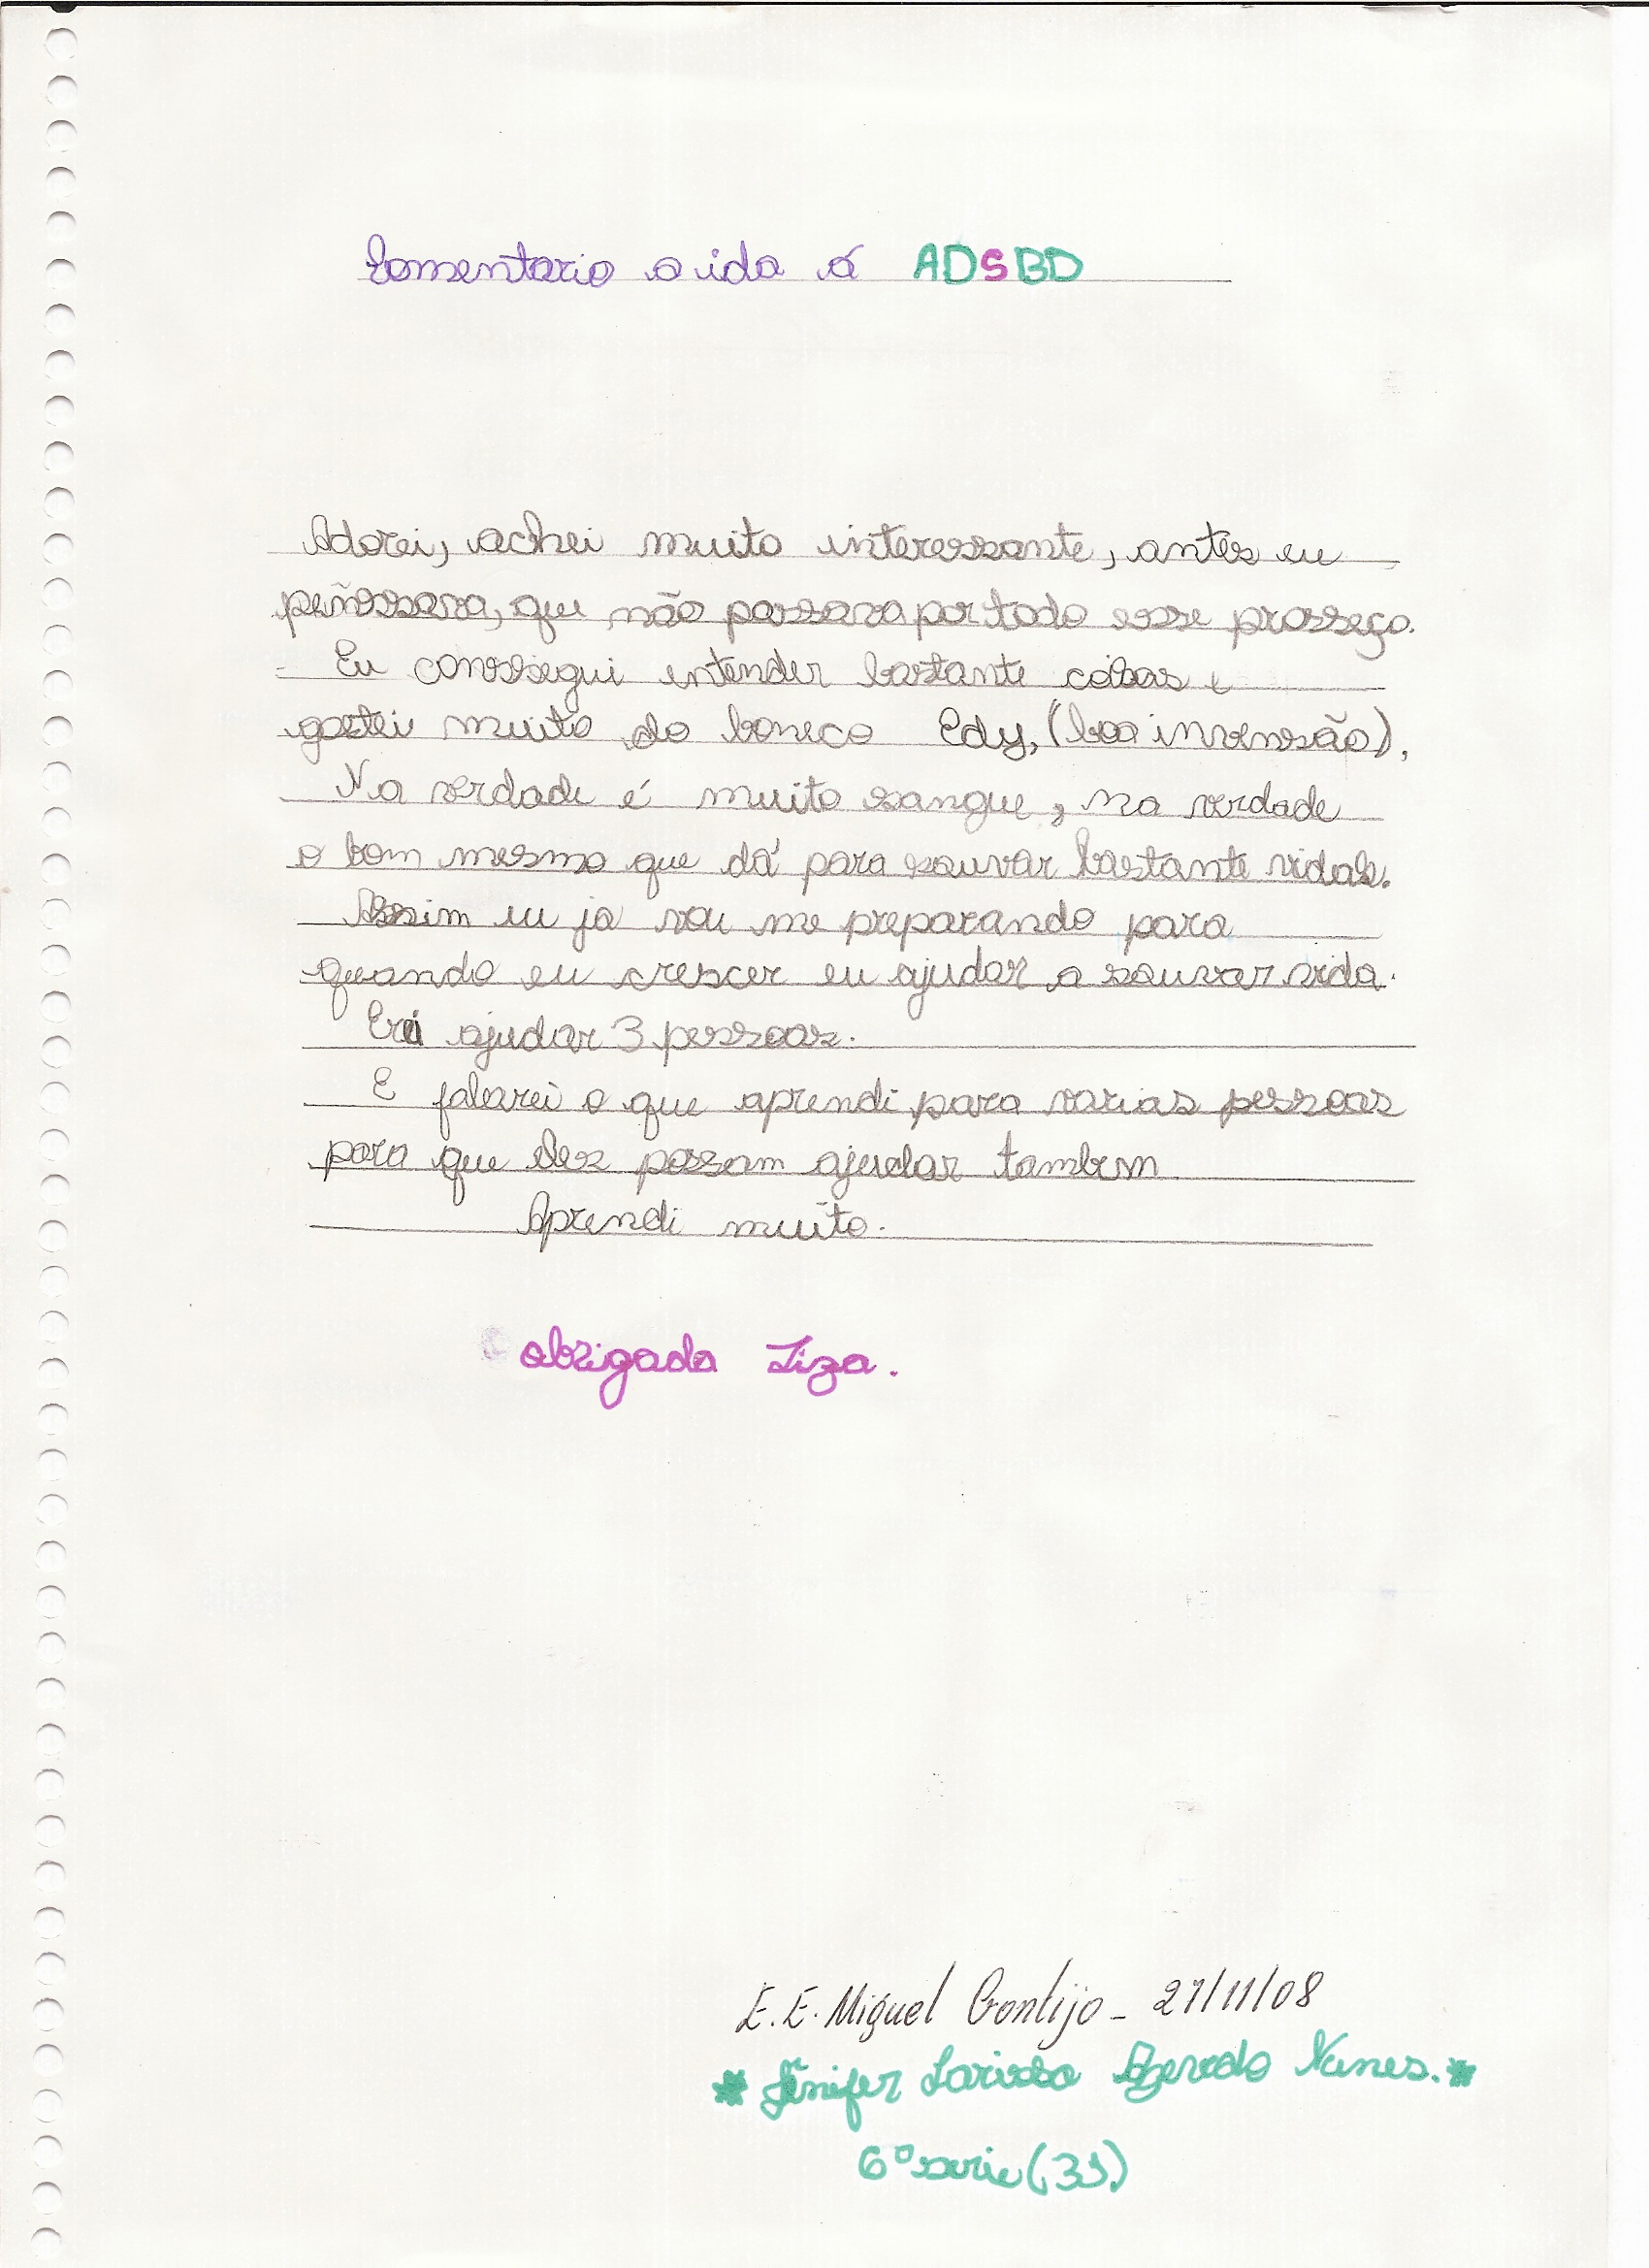 Comentario a ida á ADSBD
Adorei, achei muito interessante, antes eu
peñssava, que não passava por todo esse prosseço.
Eu conssegui entender bastante coisas e
gostei muito do boneco Edy, (boa invensão).
Na verdade é muito sangue, na verdade
o bom mesmo que dá para sauvar bastante vidas.
Assim eu ja vou me preparando para
quando eu crescer eu ajudar a sauvar vida.
ajudar 3 pessoas.
E falarei o que aprendi para varias pessoas
para que eles possam ajudar tambem
Aprendi muito.
obrigada Liza.
E.E. Miguel Gontijo - 27/11/08
* Jênifer Larissa Azevedo Nunes. *
6º serie (31)